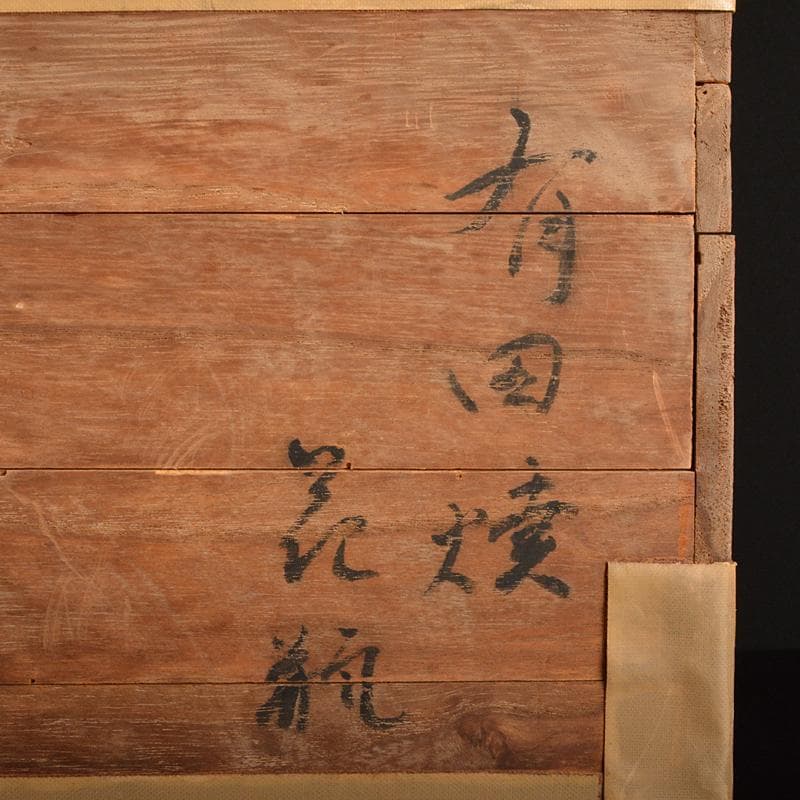 有田燒
花瓶